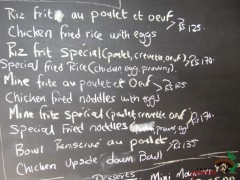 Riz frit au poulet et oeuf > Rs 125.
Chicken fried rice with eggs
Riz frit Special (poulet, crevette, oeuf) > Rs 170.
Special fried Rice (chicken, egg, prawn).
Mine frite au poulet et Oeuf > Rs 125.
Chicken fried noddles with egg
Mine frite special (poulet, crevette, oeuf) > Rs 170.
Special fried noddles prawn, egg
Bowl Renversé au poulet > Rs 135
Chicken Upside down Bowl
Desserts. Mini